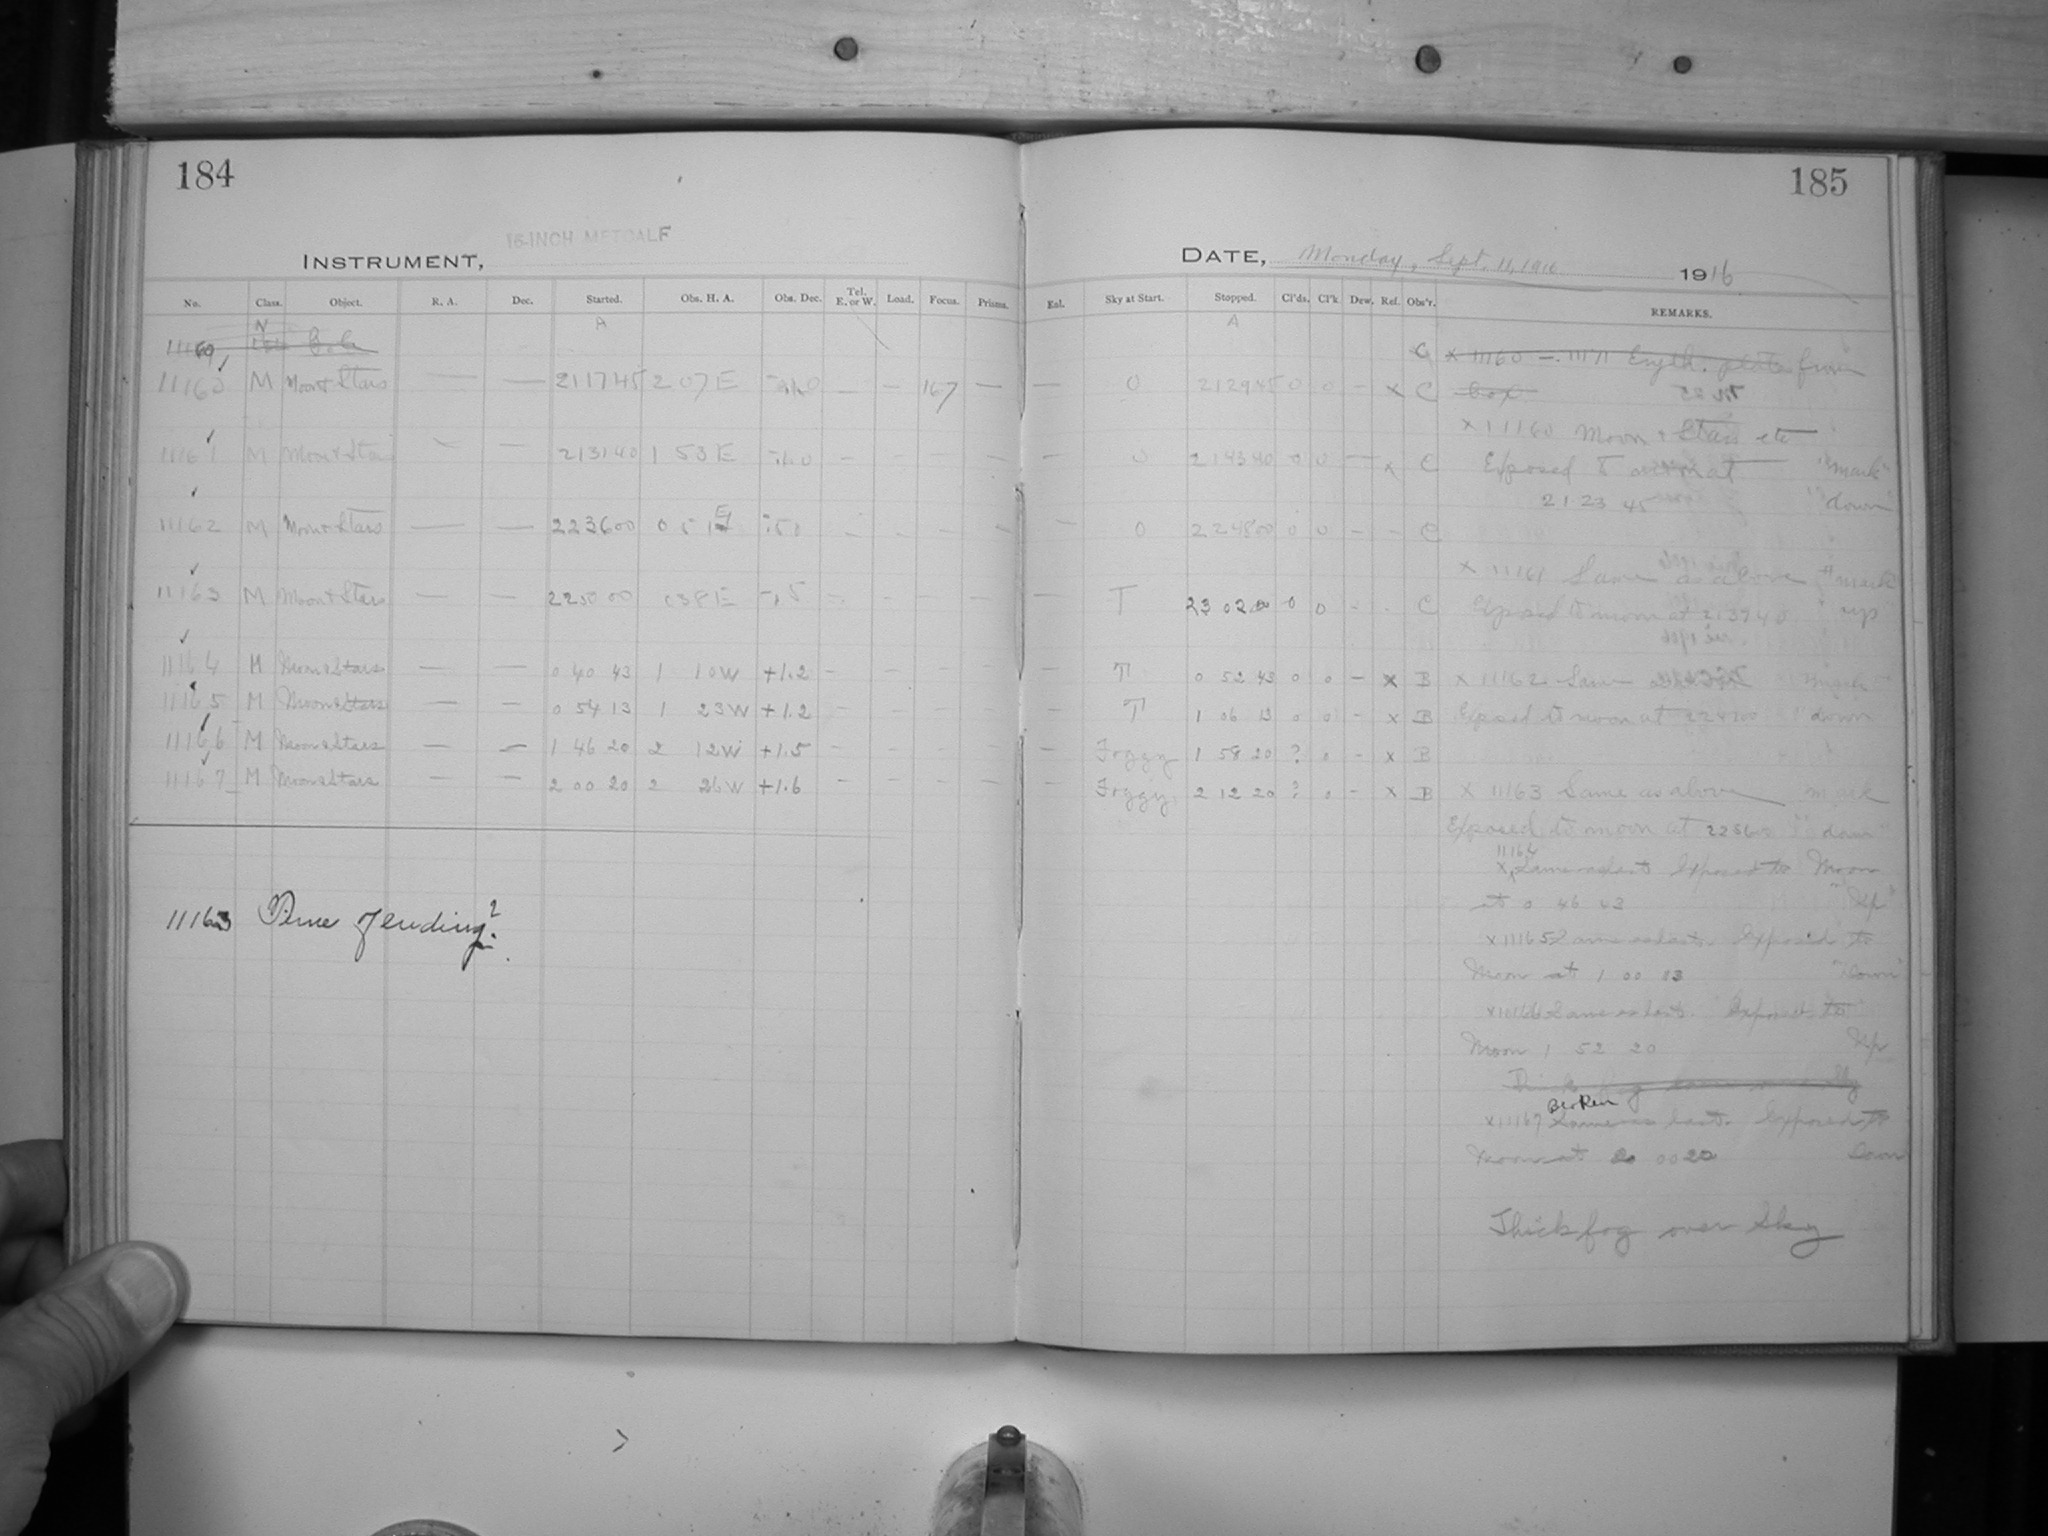 184
185
16-INCH METCALF
INSTRUMENT,
DATE, Monday, Sept. 11, 1916 1916
No. Class. Object. R. A. Dec. Started. Obs. H. A. Obs. Dec. Tel. E. or W. Load. Focus. Prisms. Exl. Sky at Start. Stopped. Cl'ds. Cl'k. Dew. Ref. Obs'r. REMARKS.
N A A
11160
11160 M Moon & Stars — — 21 17 45 2 07 E — — 167 — — 0 21 29 45 0 0 — x C
11161 M Moon & Stars — — 21 31 40 1 53 E — — — — — 0 21 43 40 0 0 — x C
11162 M Moon & Stars — — 22 36 00 0 51 E — — — — — 0 22 48 00 0 0 — - C
11163 M Moon & Stars — — 22 50 00 0 38 E -.5 — — — — — T 23 02 00 0 0 - - C
11164 M Moon & Stars — — 0 40 43 1 10 W +1.2 — — — — — — T 0 52 43 0 0 — x B
11165 M Moon & Stars — — 0 54 13 1 23 W +1.2 — — — — — — T 1 06 13 0 0 — x B
11166 M Moon & Stars — — 1 46 20 2 12 W +1.5 — — — — — — Foggy 1 58 20 ? 0 — x B
11167 M Moon & Stars — — 2 00 20 2 26 W +1.6 — — — — — — Foggy 2 12 20 ? 0 — x B
11163 Time of ending?
x 11160 – 11171 Eryth. plates from
box
x 11160 Moon & Stars etc
Exposed to moon at "mark"
21 23 45 "down"
x 11161 Same as above "mark
Exposed to moon at 21 37 40 up"
x 11162 Same
Exposed to moon at 22 42 00 "down
x 11163 Same as above mark
Exposed to moon at 22 56 0 "down"
11164
x Same as last Exposed to Moon
at 0 46 43 "Up"
x 11165 Same as last. Exposed to
Moon at 1 00 13 "Down"
x 11166 Same as last. Exposed to
Moon 1 52 20 Up
Thick fog came over Sky
Broken
x 11167 Same as last. Exposed to
Moon at 00 20 Down
Thick fog over Sky